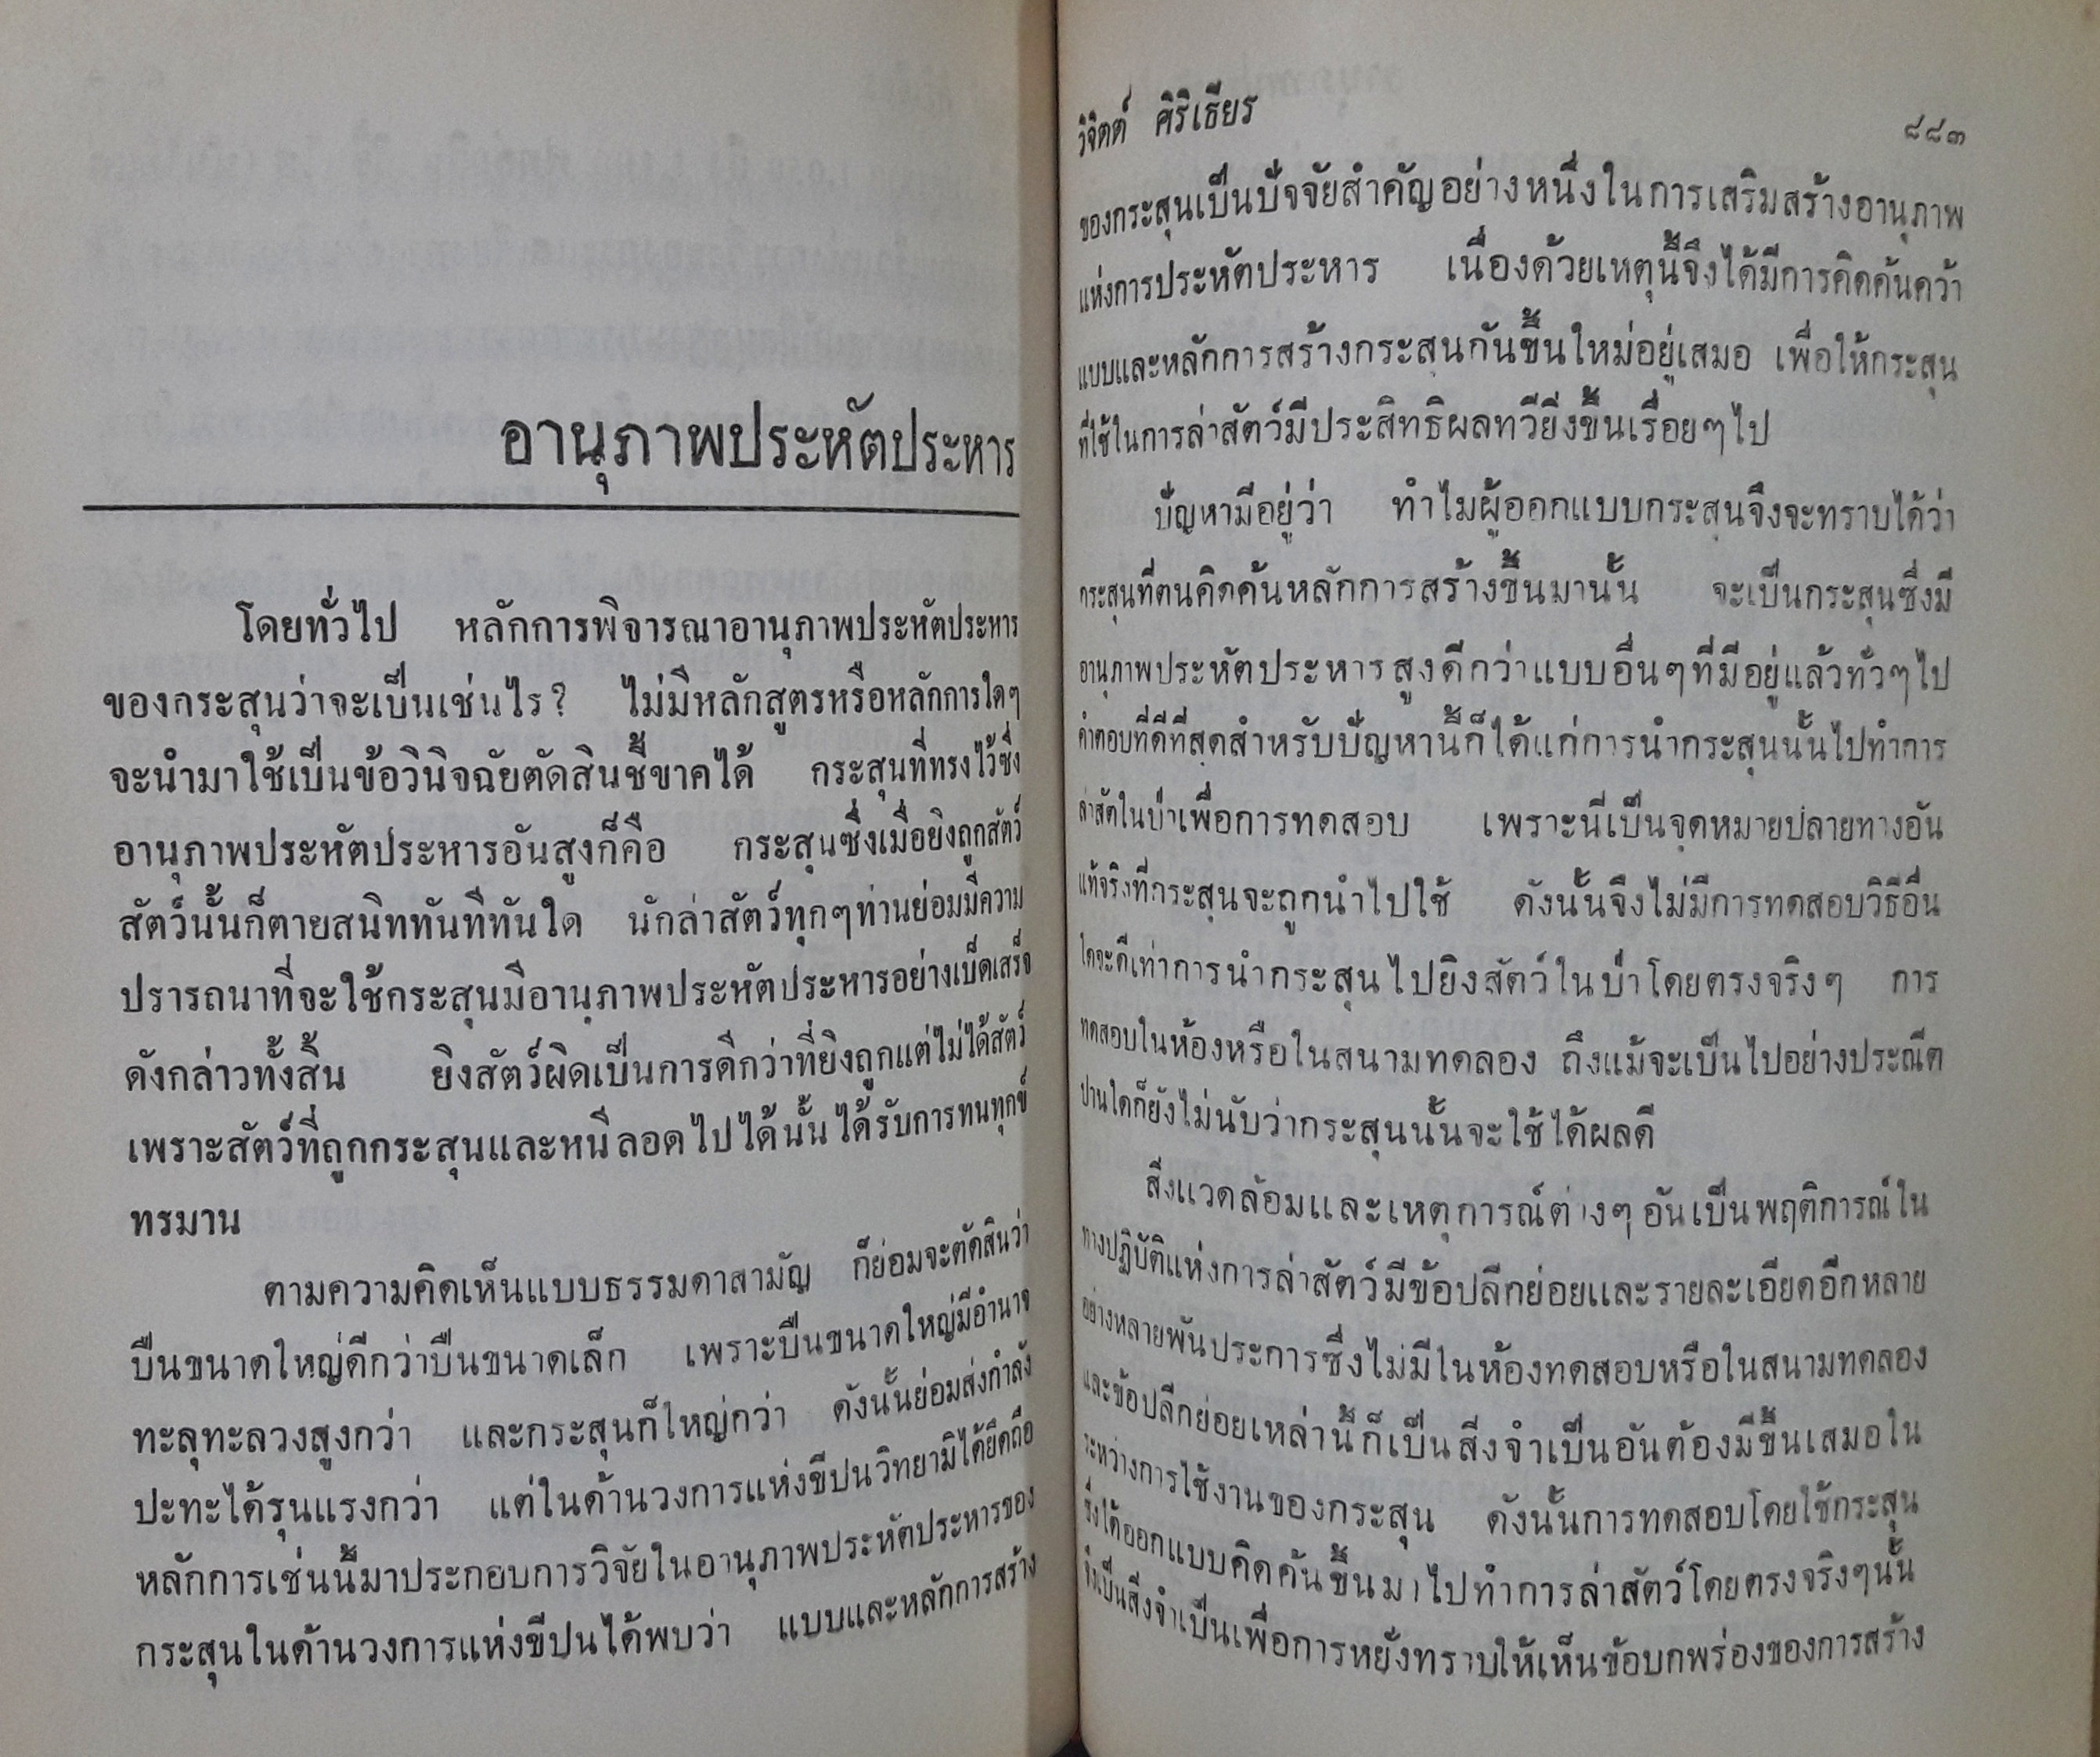 อานุภาพประหัตประหาร
โดยทั่วไป หลักการพิจารณาอานุภาพประหัตประหาร
ของกระสุนว่าจะเป็นเช่นไร? ไม่มีหลักสูตรหรือหลักการใดๆ
จะนำมาใช้เป็นข้อวินิจฉัยตัดสินชี้ขาดได้ กระสุนที่ทรงไว้ซึ่ง
อานุภาพประหัตประหารอันสูงก็คือ กระสุนซึ่งเมื่อยิงถูกสัตว์
สัตว์นั้นก็ตายสนิททันทีทันใด นักล่าสัตว์ทุกๆท่านย่อมมีความ
ปรารถนาที่จะใช้กระสุนมีอานุภาพประหัตประหารอย่างเบ็ดเสร็จ
ดังกล่าวทั้งสิ้น ยิงสัตว์ผิดเป็นการดีกว่าที่ยิงถูกแต่ไม่ได้สัตว์
เพราะสัตว์ที่ถูกกระสุนและหนีลอดไปได้นั้นได้รับการทนทุกข์
ทรมาน
ตามความคิดเห็นแบบธรรมดาสามัญ ก็ย่อมจะตัดสินว่า
ปืนขนาดใหญ่ดีกว่าปืนขนาดเล็ก เพราะปืนขนาดใหญ่มีอำนาจ
ทะลุทะลวงสูงกว่า และกระสุนก็ใหญ่กว่า ดังนั้นย่อมส่งกำลัง
ปะทะได้รุนแรงกว่า แต่ในด้านวงการแห่งขีปนวิทยามิได้ยึดถือ
หลักการเช่นนี้มาประกอบการวิจัยในอานุภาพประหัตประหารของ
กระสุนในด้านวงการแห่งขีปนได้พบว่า แบบและหลักการสร้าง
วิจิตต์ ศิริเธียร ๘๘๓
ของกระสุนเป็นปัจจัยสำคัญอย่างหนึ่งในการเสริมสร้างอานุภาพ
แห่งการประหัตประหาร เนื่องด้วยเหตุนี้จึงได้มีการคิดค้นคว้า
แบบและหลักการสร้างกระสุนกันขึ้นใหม่อยู่เสมอ เพื่อให้กระสุน
ที่ใช้ในการล่าสัตว์มีประสิทธิผลทวียิ่งขึ้นเรื่อยๆไป
ปัญหามีอยู่ว่า ทำไมผู้ออกแบบกระสุนจึงจะทราบได้ว่า
กระสุนที่ตนคิดค้นหลักการสร้างขึ้นมานั้น จะเป็นกระสุนซึ่งมี
อานุภาพประหัตประหารสูงดีกว่าแบบอื่นๆที่มีอยู่แล้วทั่วๆไป
คำตอบที่ดีที่สุดสำหรับปัญหานี้ก็ได้แก่การนำกระสุนนั้นไปทำการ
ล่าสัตในป่าเพื่อการทดสอบ เพราะนี่เป็นจุดหมายปลายทางอัน
แท้จริงที่กระสุนจะถูกนำไปใช้ ดังนั้นจึงไม่มีการทดสอบวิธีอื่น
ใดจะดีเท่าการนำกระสุนไปยิงสัตว์ในป่าโดยตรงจริงๆ การ
ทดสอบในห้องหรือในสนามทดลอง ถึงแม้จะเป็นไปอย่างประณีต
ปานใดก็ยังไม่นับว่ากระสุนนั้นจะใช้ได้ผลดี
สิ่งแวดล้อมและเหตุการณ์ต่างๆอันเป็นพฤติการณ์ใน
ทางปฏิบัติแห่งการล่าสัตว์มีข้อปลีกย่อยและรายละเอียดอีกหลาย
อย่างหลายพันประการซึ่งไม่มีในห้องทดสอบหรือในสนามทดลอง
และข้อปลีกย่อยเหล่านี้ก็เป็นสิ่งจำเป็นอันต้องมีขึ้นเสมอใน
ระหว่างการใช้งานของกระสุน ดังนั้นการทดสอบโดยใช้กระสุน
ซึ่งได้ออกแบบคิดค้นขึ้นมาไปทำการล่าสัตว์โดยตรงจริงๆนั้น
จึงเป็นสิ่งจำเป็นเพื่อการหยั่งทราบให้เห็นข้อบกพร่องของการสร้าง